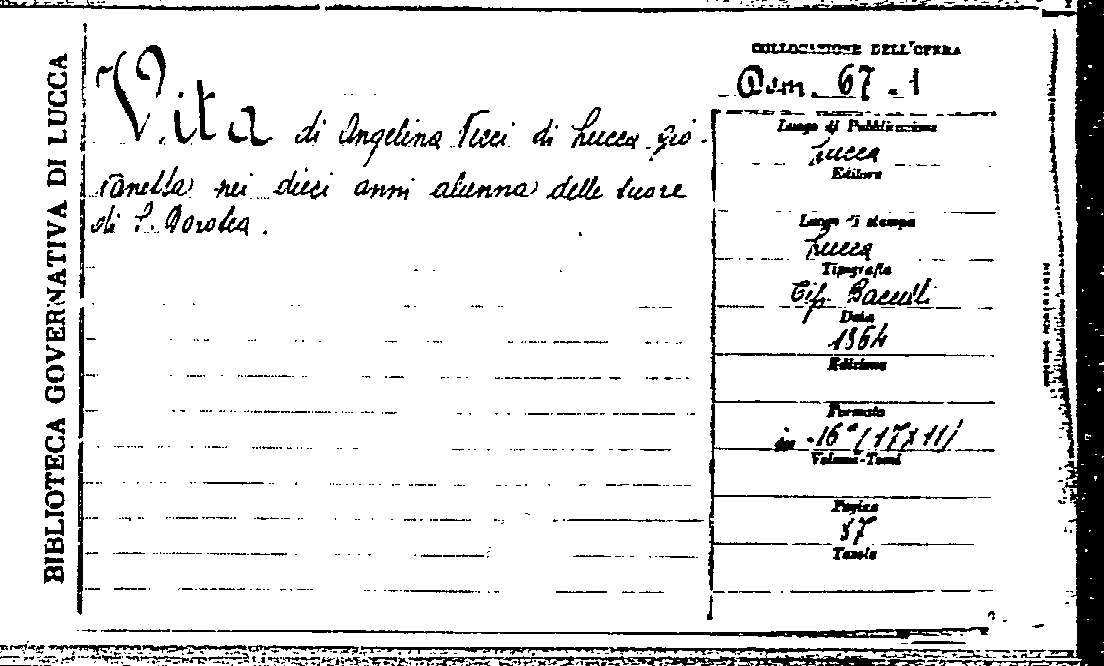 BIBLIOTECA GOVERNATIVA DI LUCCA
Vita di Angelina Tecci di Lucca gio-
vanetta nei dieci anni alunna delle suore
di S. Dorotea.
COLLOCAZIONE DELL'OPERA
Dom. 67.1
Luogo di Pubblicazione
Lucca
Editore
Luogo di stampa
Lucca
Tipografia
Tip.
Data
Edizione
Formato
in-16° (17x11)
Volume-Tomi
Pagine
Tavole